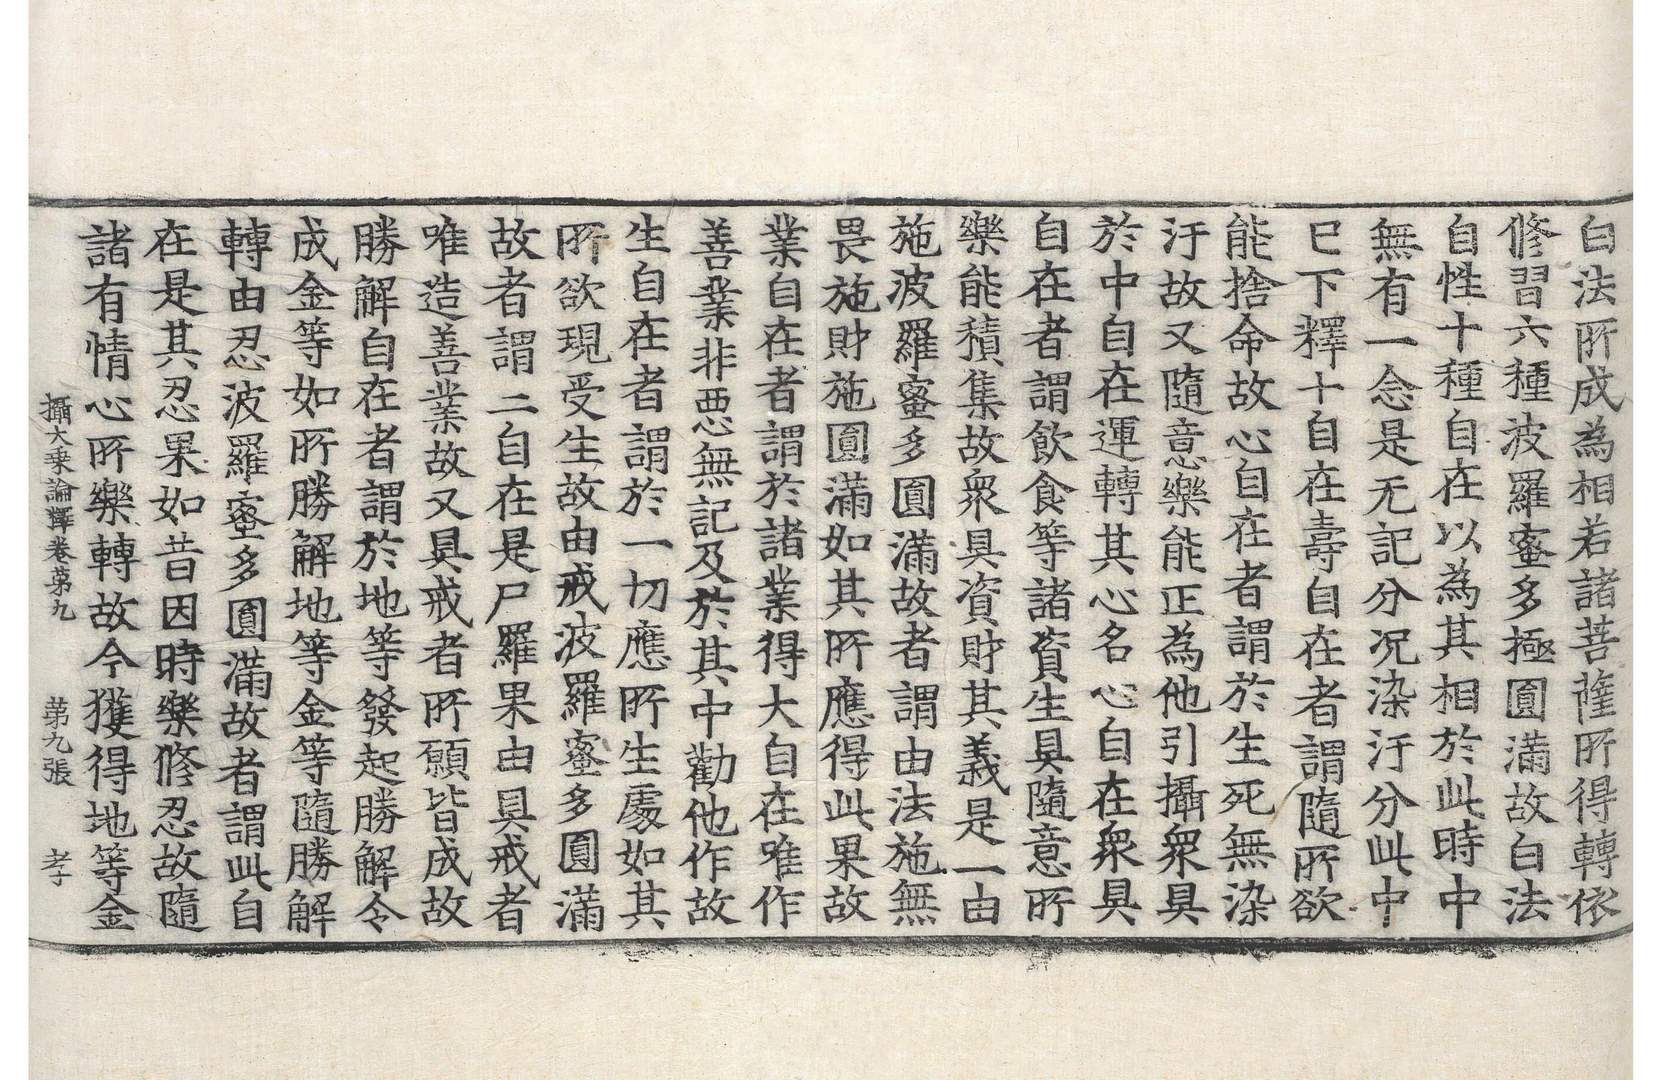 白法所成為相若諸菩薩所得轉依
修習六種波羅蜜多極圓滿故白法
自性十種自在以為其相於此時中
無有一念是无記分况染汙分此中
已下釋十自在壽自在者謂隨所欲
能捨命故心自在者謂於生死無染
汙故又隨意樂能正為他引攝衆具
於中自在運轉其心名心自在衆具
自在者謂飲食等諸資生具隨意所
樂能積集故衆具資財其義是一由
施波羅蜜多圓滿故者謂由法施無
畏施財施圓滿如其所應得此果故
業自在者謂於諸業得大自在唯作
善業非惡無記及於其中勸他作故
生自在者謂於一切應所生處如其
所欲現受生故由戒波羅蜜多圓滿
故者謂二自在是尸羅果由具戒者
唯造善業故又具戒者所願皆成故
勝解自在者謂於地等發起勝解令
成金等如所勝解地等金等隨勝解
轉由忍波羅蜜多圓滿故者謂此自
在是其忍果如昔因時樂修忍故隨
諸有情心所樂轉故今獲得地等金
攝大乘論釋卷苐九　苐九張　孝